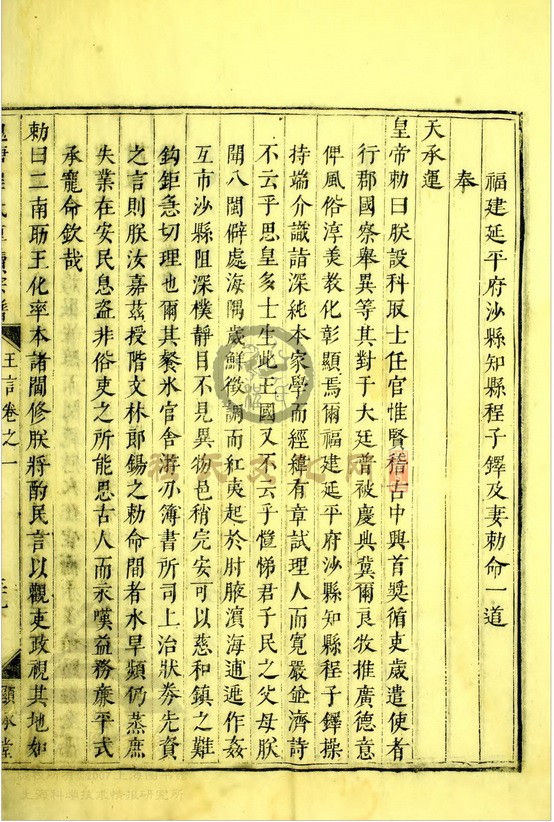 福建延平府沙縣知縣程子鐸及妻勅命一道
奉
天承運
皇帝勅曰朕設科取士任官惟賢稽古中興首奬循吏歲遣使者
行郡國察舉異等其對于大廷普被慶典冀爾良牧推廣德意
俾風俗淳美教化彰顯焉爾福建延平府沙縣知縣程子鐸操
持端介識詣深純本家學而經緯有章試理人而寬嚴並濟詩
不云乎思皇多士生此王國又不云乎愷悌君子民之父母朕
聞八閩僻處海隅歲鮮徵調而紅夷起於肘腋濱海逋逃作姦
互市沙縣阻深樸靜目不見異物邑稍完安可以慈和鎮之難
鈎鉅急切理也爾其餐氷官舍游刃簿書所司上治狀券先資
之言則朕汝嘉茲授階文林郎錫之勅命間者水旱頻仍蒸庶
失業在安民息盜非俗吏之所能思古人而永嘆益務亷平式
承寵命欽哉
勅曰二南助王化率本諸閫修朕將酌民言以觀吏政視其地如
王言卷之一